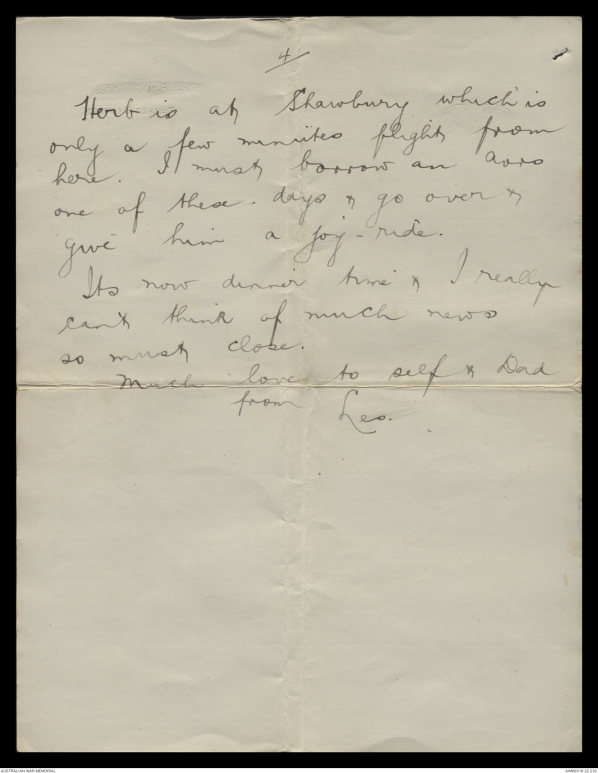 4
Herb is at Shawbury which is
only a few minutes flight from
here. I must borrow an Avro
one of these days & go over &
give him a joy-ride.
Its now dinner time & I really
can't think of much news
so must close.
Much love to self & Dad
from Les.
AUSTRALIAN WAR MEMORIAL